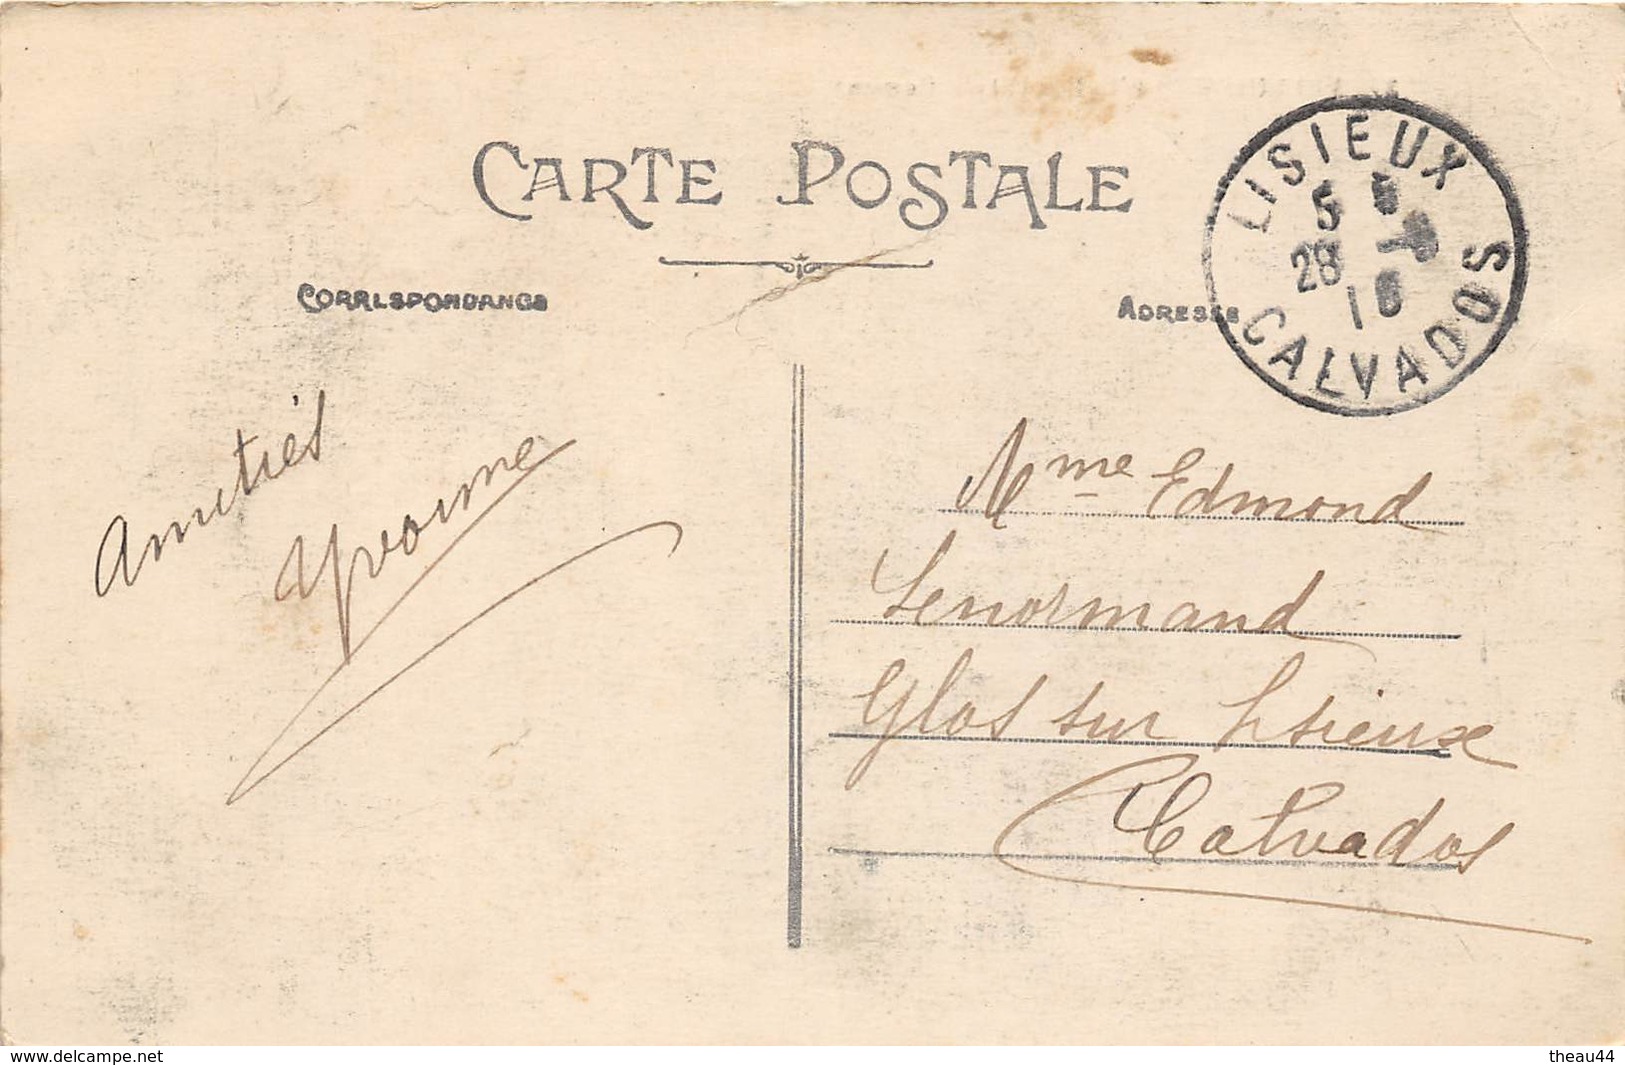 CARTE POSTALE
CORRESPONDANCE
ADRESSE
LISIEUX
5
28
CALVADOS
Amitiés
Yvonne
Mme Edmond
Lenormand
Glos sur Lisieux
Calvados
www.delcampe.net
theau44